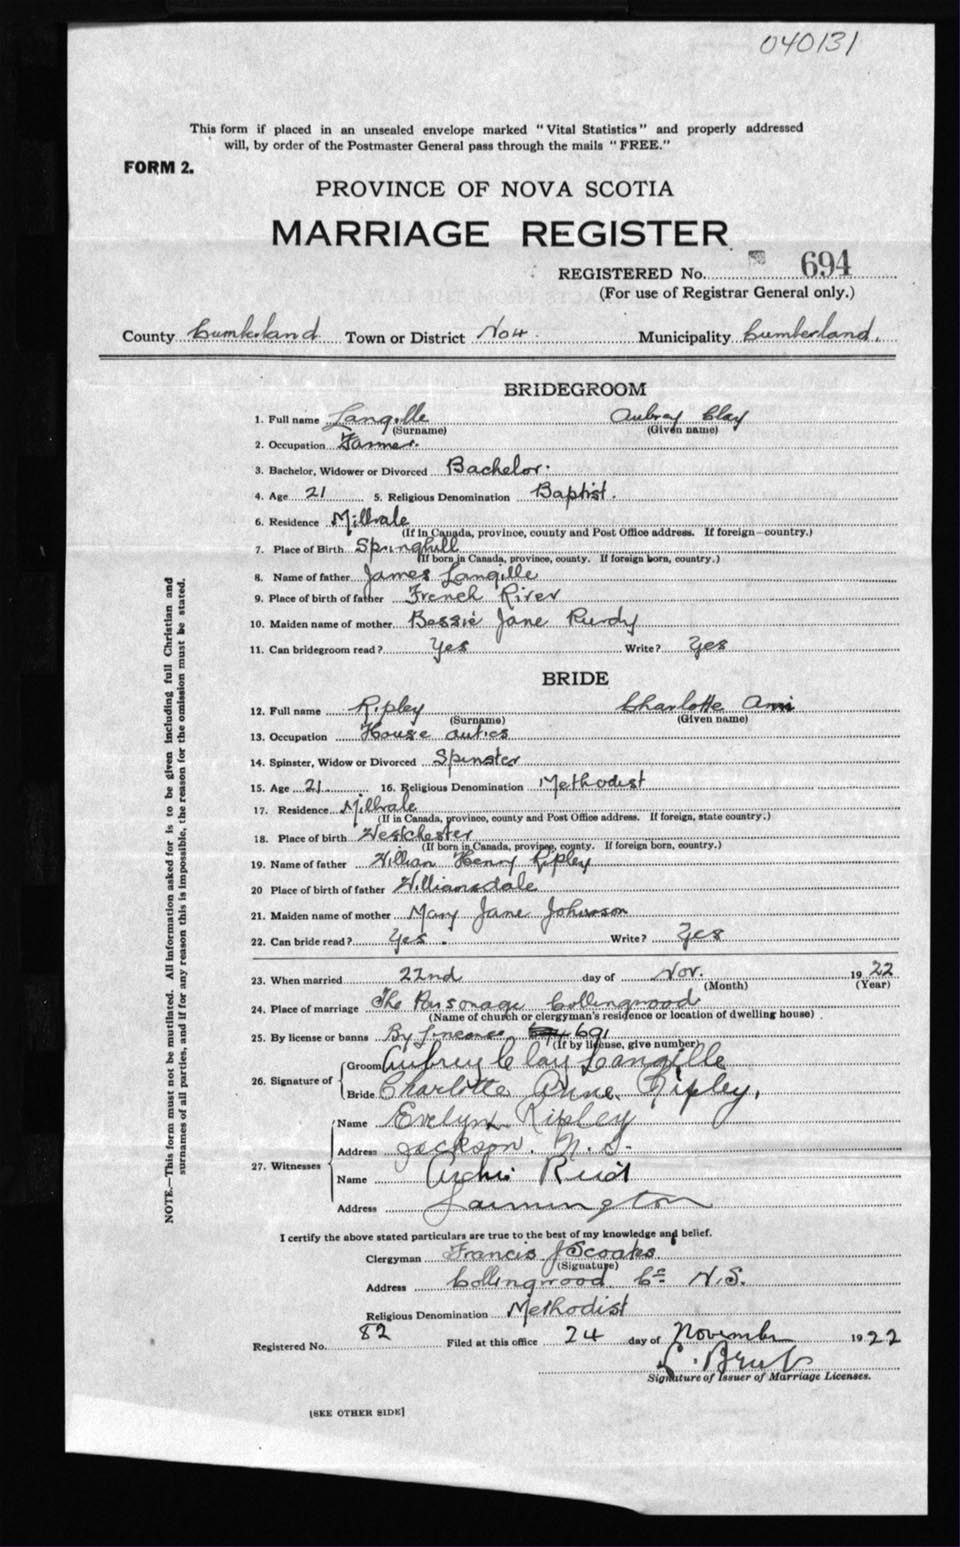 040131
This form if placed in an unsealed envelope marked "Vital Statistics" and properly addressed
will, by order of the Postmaster General pass through the mails "FREE."
FORM 2.
PROVINCE OF NOVA SCOTIA
MARRIAGE REGISTER
REGISTERED No. 694
(For use of Registrar General only.)
County Cumberland Town or District No 4 Municipality Cumberland.
BRIDEGROOM
1. Full name Langille Aubrey Clay
(Surname) (Given name)
2. Occupation Farmer.
3. Bachelor, Widower or Divorced Bachelor.
4. Age 21 5. Religious Denomination Baptist.
6. Residence Millvale
(If in Canada, province, county and Post Office address. If foreign—country.)
7. Place of Birth Springhill
(If born in Canada, province, county. If foreign born, country.)
8. Name of father James Langille
9. Place of birth of father French River
10. Maiden name of mother Bessie Jane Purdy
11. Can bridegroom read? Yes Write? Yes
BRIDE
12. Full name Ripley Charlotte Ann
(Surname) (Given name)
13. Occupation House duties
14. Spinster, Widow or Divorced Spinster
15. Age 21 16. Religious Denomination Methodist
17. Residence Millvale
(If in Canada, province, county and Post Office address. If foreign, state country.)
18. Place of birth Westchester
(If born in Canada, province, county. If foreign born, country.)
19. Name of father William Henry Ripley
20 Place of birth of father Williamsdale
21. Maiden name of mother Mary Jane Johnson
22. Can bride read? Yes. Write? Yes
23. When married 22nd day of Nov. 1922
(Month) (Year)
24. Place of marriage The Parsonage Collingwood
(Name of church or clergyman's residence or location of dwelling house)
25. By license or banns By Lincence 691
(If by license, give number)
26. Signature of
Groom Aubrey Clay Langille
Bride Charlotte Anne Ripley.
27. Witnesses
Name Evelyn Ripley
Address Jackson. N. S.
Name Archie Reid
Address
I certify the above stated particulars are true to the best of my knowledge and belief.
Clergyman Francis J Scoats
(Signature)
Address Collingwood Co N.S.
Religious Denomination Methodist
Registered No. 82 Filed at this office 24 day of November 1922
Signature of Issuer of Marriage Licenses.
[SEE OTHER SIDE]
NOTE.—This form must not be mutilated. All information asked for is to be given including full Christian and
surnames of all parties, and if for any reason this is impossible, the reason for the omission must be stated.